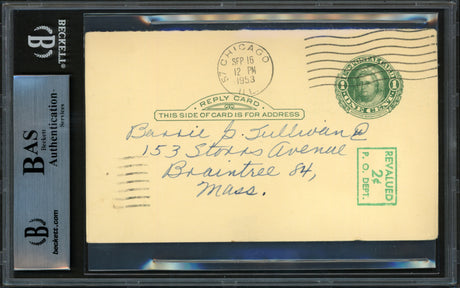 BECKETT
BAS
Beckett
Authentication
Services
beckett.com
CHICAGO
SEP 16
12 PM
1953
ILL.
REPLY CARD
THIS SIDE OF CARD IS FOR ADDRESS
REVALUED
2¢
P. O. DEPT.
Barrie J. Sullivan
153 Storrs Avenue
Braintree 84,
Mass.